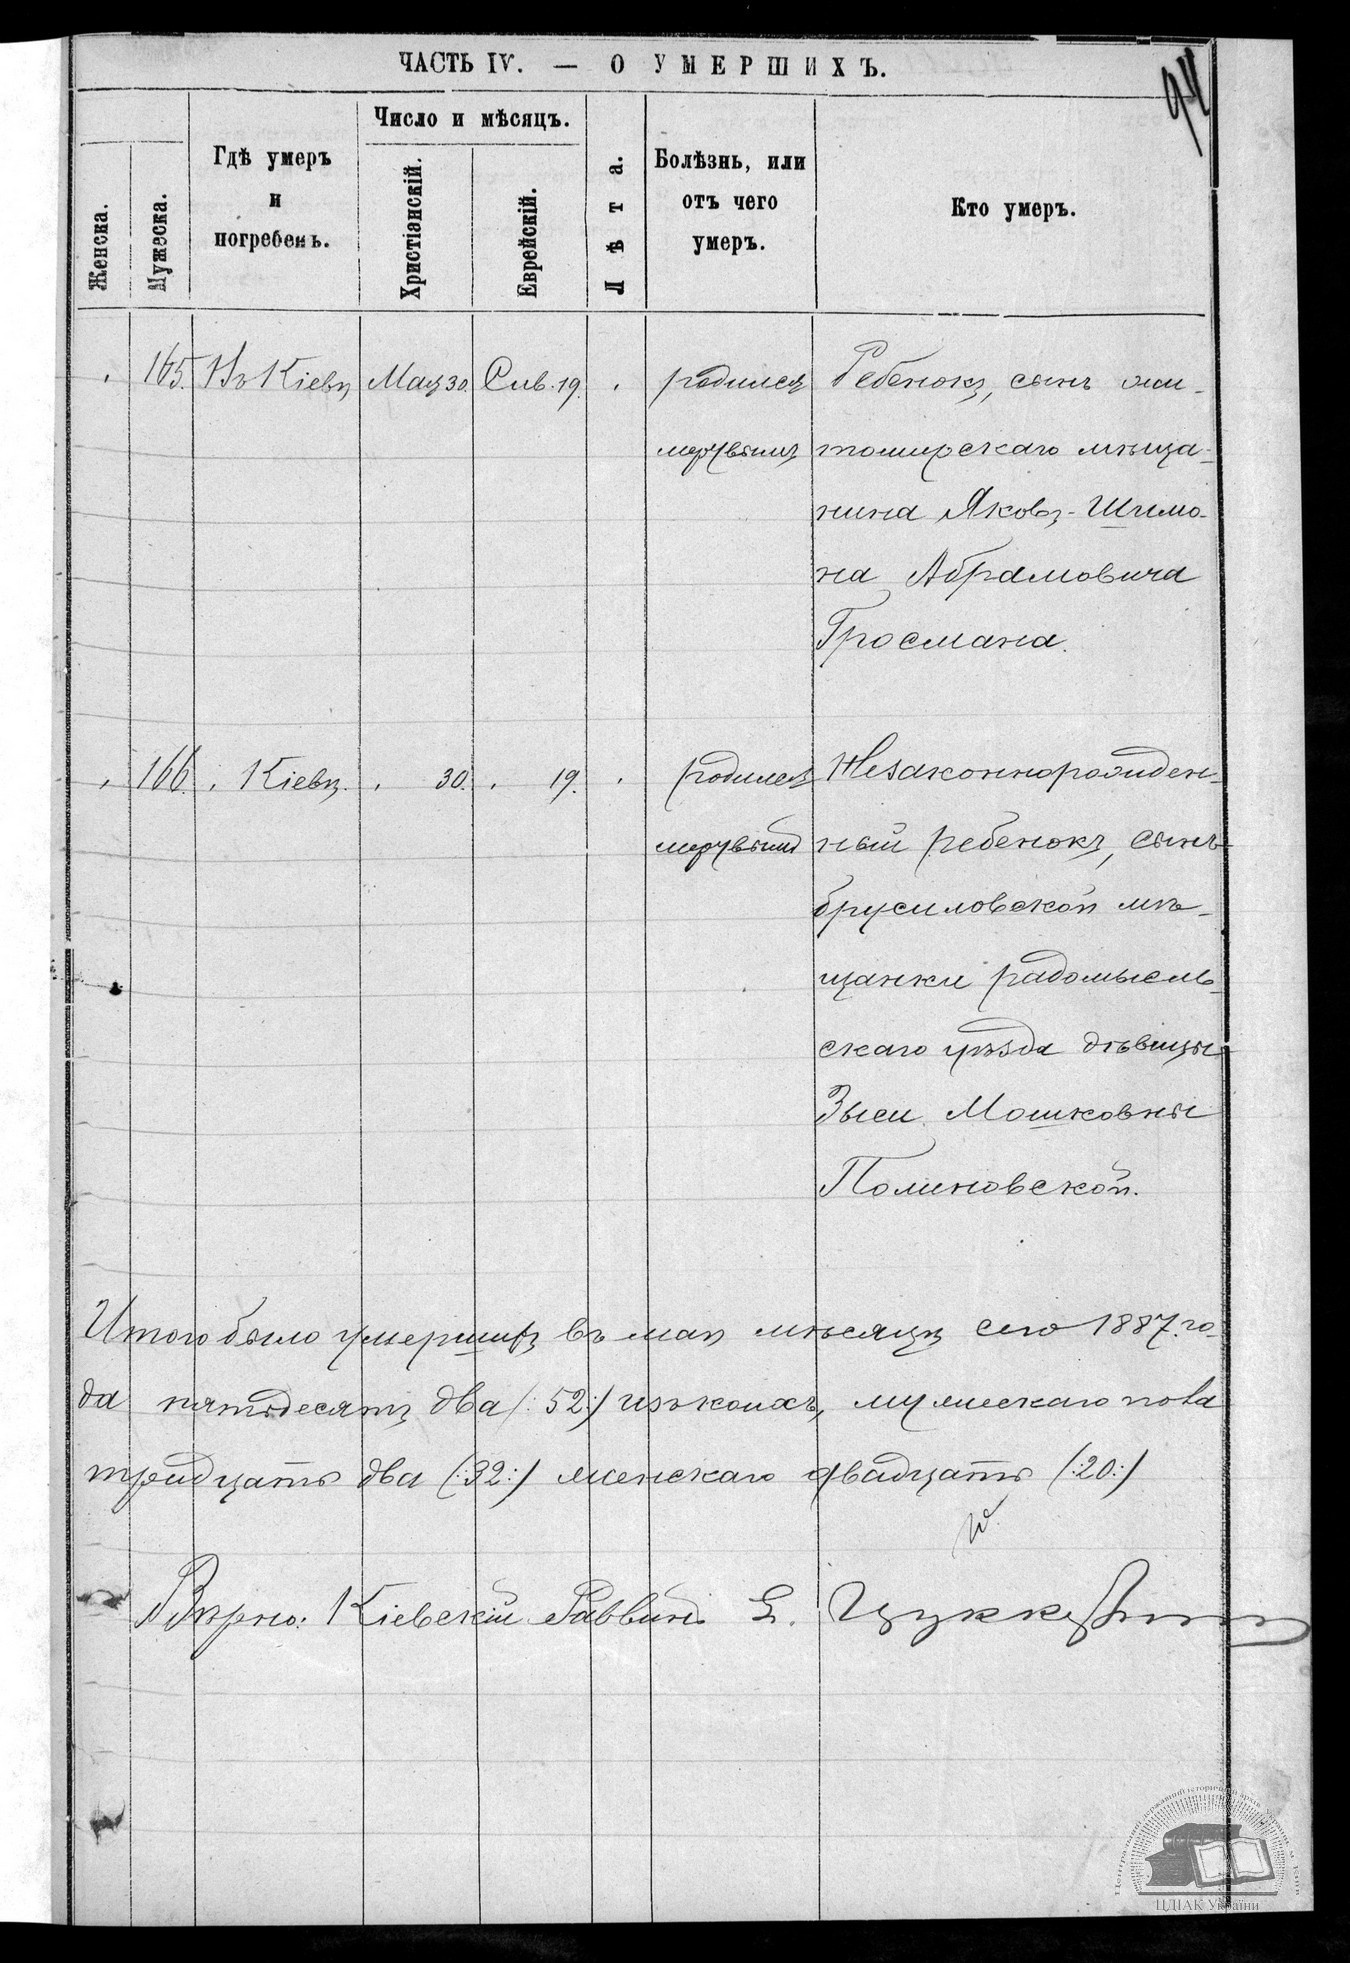 94
ЧАСТЬ IV. — О УМЕРШИХЪ.
Женска.
Мужеска.
Гдѣ умеръ
и
погребенъ.
Число и мѣсяцъ.
Христіянскій.
Еврейскій.
Лѣта.
Болѣзнь, или
отъ чего
умеръ.
Кто умеръ.
165. Въ Кіевѣ Мая 30. Сив. 19. родился Ребенокъ, сынъ жи-
мертвымъ томирскаго мѣща-
нина Яковъ-Шимо-
на Абрамовича
Гросмана.
166. Кіевѣ. 30. 19. родился Незаконнорожден-
мертвымъ ный ребенокъ, сынъ
брусиловской мѣ-
щанки радомысль-
скаго уѣзда дѣвицы
Зыси Мошковны
Полиновской.
Итого было умершихъ въ маѣ мѣсяцѣ сего 1887. го-
да пятьдесятъ два (:52:) изъ коихъ, мужескаго пола
тридцать два (:32:) женскаго двадцать (:20:)
Вѣрно: Кіевскій Раввинъ Е. Цуккерманъ
Центральний державний історичний архів України, м. Київ
ЦДІАК України